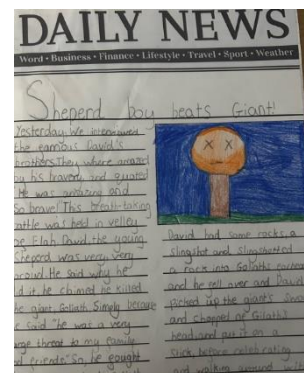 DAILY NEWS
Word • Business • Finance • Lifestyle • Travel • Sport • Weather
Sheperd boy beats Giant!
Yesterday We interviewed
the famous David's
brothers. They where amazed
by his bravery and quoted
"He was amazing and
so brave! This breath-taking
battle was held in velley
be Elah. David the young
Sheperd was very very
proud. He said why he
did it. he claimed he killed
the giant Goliath Simply because
he said "he was a very
large threat to my family
and friends." So, he fought
David had some rocks, a
slingshot and Slingshotted
a rock into Goliaths
and he fell over and David
picked up the giant's
and chopped of Goliaths
head and put it on a
stick, before celebrating
and walking around with